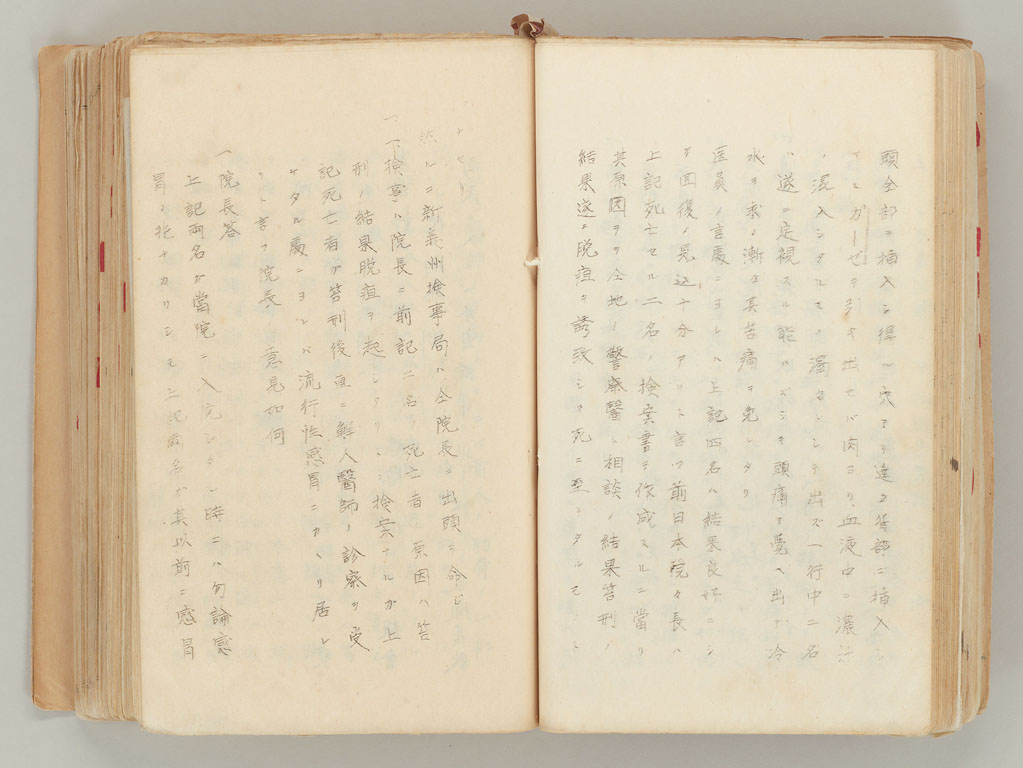 頭全部ヲ挿入シ得ル穴マデ達シ
ガーゼヲ引キ出セバ肉ヨリ血液中ニ濃汁
ノ混入シタルモノ濁々シテ出ズ一行中二名
ハ遂ニ定視スル能ハズシテ頭痛ヲ覚ヘ出デ冷
水ヲ求メ漸ク其苦痛ヲ免レタリ
医員ノ言慶ニヨレバ上記四名ハ結果良好ニシ
テ回復ノ見込十分アリト言フ前日本院々長ハ
上記死亡セル二名ノ検案書ヲ作成スルニ當リ
其原因ヲ全地ノ警察醫ト相談ノ結果笞刑ノ
結果遂ニ脱疽ヲ誘致シテ死ニ至リタルモト
ナセリ
然ルニ新義州検事局ハ仝院長ニ出頭ヲ命ジ
一、検事ハ院長ニ前記二名ノ死亡者原因ハ笞
刑ノ結果脱疽ヲ起シタリトノ検案ナルガ上
記死亡者ガ笞刑後直ニ鮮人醫師ノ診察ヲ受
ケタル處ニヨレバ流行性感冒ニカヽリ居レ
リト言フ院長ノ意見如何
一院長答
上記両名ガ當院ニ入院シタル時ニハ勿論感
冒ノ兆ナカリシモ上記両名ガ其以前ニ感冒